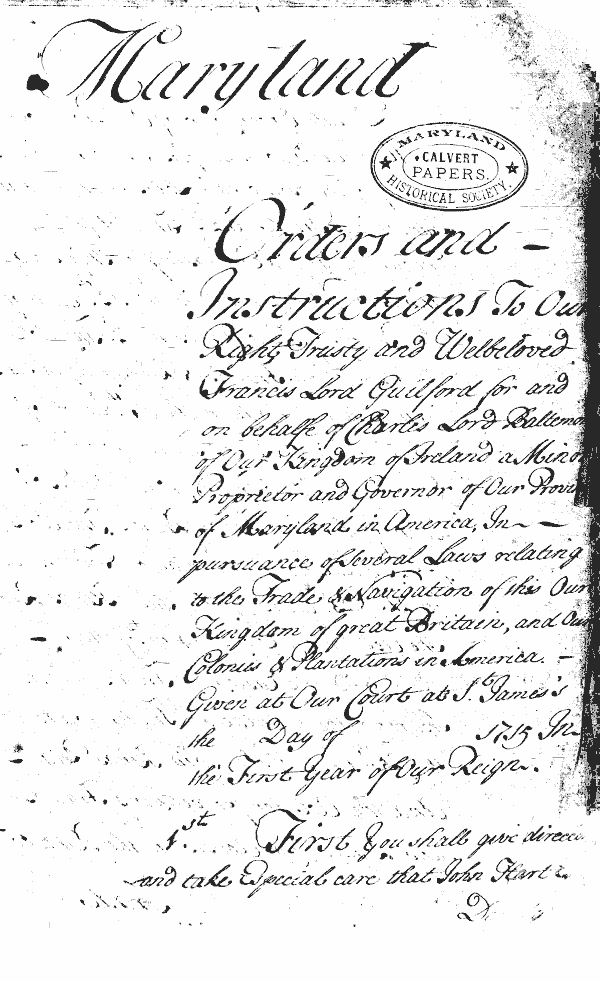 Maryland
MARYLAND
CALVERT
PAPERS.
HISTORICAL SOCIETY.
Orders and -
Instructions To Our
Right Trusty and Welbeloved
Francis Lord Guilford for and
on behalfe of Charles Lord Baltemo
of Our Kingdom of Ireland a Minor
Proprietor and Governor of Our Provi
of Maryland in America, In - -
pursuance of Several Laws relating
to the Trade & Navigation of this Our
Kingdom of great Britain, and Our
Colonies & Plantations in America. -
Given at Our Court at St. James's
the Day of 1715 In
the First Year of Our Reign.
1.st First You shall give direcc
and take Especial care that John Hart